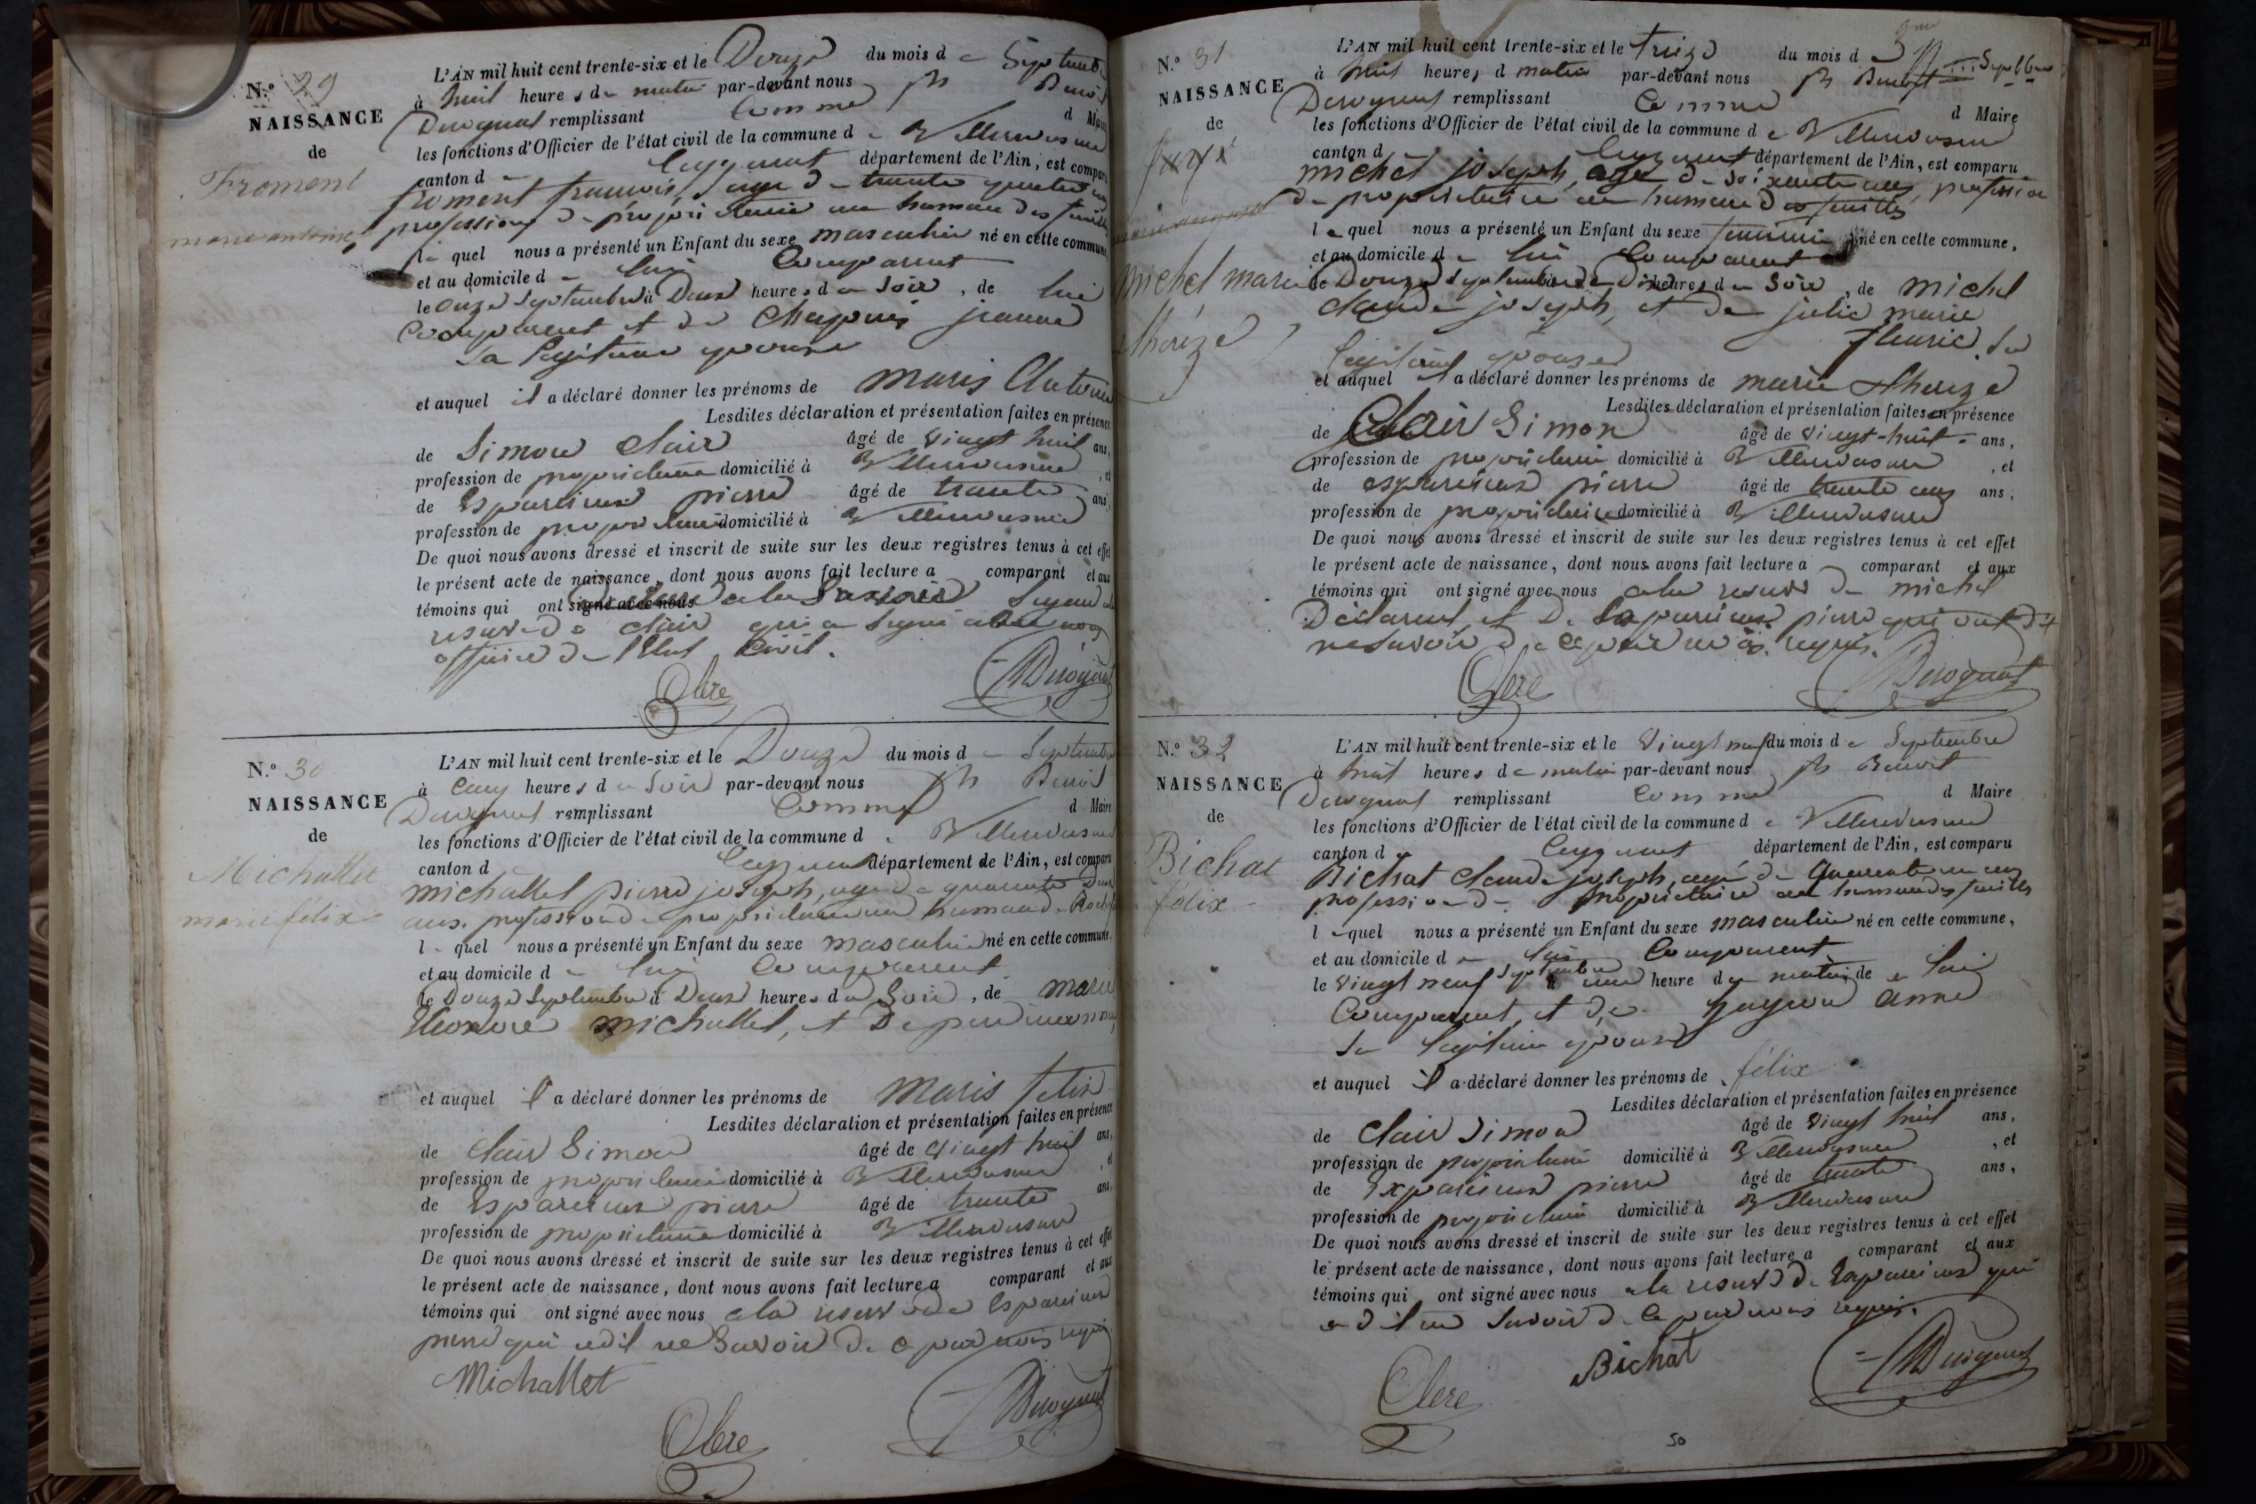 N.° 29
NAISSANCE
de
Froment
marie antoine
L'AN mil huit cent trente-six et le Douze du mois d e Septembre
à huit heures de matin par-devant nous Benoit
remplissant comme d Maire
les fonctions d'Officier de l'état civil de la commune d e
canton d e département de l'Ain, est comparu
froment francois, age de trente quatre ans
profession de propriétaire au hameau des
le quel nous a présenté un Enfant du sexe masculin né en cette commune,
et au domicile d e lui Comparant
le onze Septembre à Deux heures du Soir, de lui
Comparant et de Chapuis jeanne
Sa legitime epouse
et auquel il a déclaré donner les prénoms de maris Antoine
Lesdites déclaration et présentation faites en présence
de Simon Clair âgé de vingt huit ans,
profession de propriétaire domicilié à , et
de Esparcieux pierre âgé de trente ans,
profession de propriétaire domicilié à
De quoi nous avons dressé et inscrit de suite sur les deux registres tenus à cet effet
le présent acte de naissance, dont nous avons fait lecture a comparant et aux
témoins qui ont signé avec nous
reserve de Clair qui a Signé avec nous
officier de l'Etat Civil.
Clere
N.° 30
NAISSANCE
de
Michallet
marie félix
L'AN mil huit cent trente-six et le Douze du mois d e Septembre
à cinq heures du Soir par-devant nous Benoit
remplissant Comme d Maire
les fonctions d'Officier de l'état civil de la commune d e
canton d département de l'Ain, est comparu
michallet pierre joseph, age de quarante Deux
ans, profession de propriétaire au hameau de
le quel nous a présenté un Enfant du sexe masculin né en cette commune,
et au domicile d e lui Comparant
le Douze Septembre à Deux heures du Soir, de marie
michallet, et De
et auquel il a déclaré donner les prénoms de Maris felix
Lesdites déclaration et présentation faites en présence
de Clair Simon âgé de vingt huit ans,
profession de propriétaire domicilié à , et
de Esparcieux pierre âgé de trente ans,
profession de propriétaire domicilié à
De quoi nous avons dressé et inscrit de suite sur les deux registres tenus à cet effet
le présent acte de naissance, dont nous avons fait lecture a comparant et aux
témoins qui ont signé avec nous a la reserve de Esparcieux
pierre qui a dit ne Savoir de ce par nous requis
Michallet
Clere
N.° 31
NAISSANCE
de
michel marie
thérèze
L'AN mil huit cent trente-six et le treize du mois d e Septbre
à huit heures d matin par-devant nous Benoit
remplissant Comme d Maire
les fonctions d'Officier de l'état civil de la commune d e
canton d département de l'Ain, est comparu
michel joseph, age de soixante ans, profession
de propriétaire au hameau des
le quel nous a présenté un Enfant du sexe feminin né en cette commune,
et au domicile d e lui Comparant
le Douze Septembre à heures du Soir, de michel
Claude joseph, et de julie marie
fleurie. Sa
legitime epouse
et auquel a déclaré donner les prénoms de marie therèze
Lesdites déclaration et présentation faites en présence
de Clair Simon âgé de vingt-huit ans,
profession de propriétaire domicilié à , et
de esparcieux pierre âgé de trente ans,
profession de propriétaire domicilié à
De quoi nous avons dressé et inscrit de suite sur les deux registres tenus à cet effet
le présent acte de naissance, dont nous avons fait lecture a comparant et aux
témoins qui ont signé avec nous a la reserve de michel
Déclarant, et De Esparcieux pierre qui ont dit
ne Savoir de ce par nous requis.
Clere
N.° 32
NAISSANCE
de
Bichat
félix
L'AN mil huit cent trente-six et le vingt neuf du mois d e Septembre
à huit heures de matin par-devant nous Benoit
remplissant Comme d Maire
les fonctions d'Officier de l'état civil de la commune d e
canton d e département de l'Ain, est comparu
Bichat Claude joseph, age de quarante un ans
profession de propriétaire au hameau des
le quel nous a présenté un Enfant du sexe masculin né en cette commune,
et au domicile d e lui Comparant
le vingt neuf Septembre à une heure du matin de lui
Comparant, et De anne
Sa legitime epouse
et auquel il a déclaré donner les prénoms de félix
Lesdites déclaration et présentation faites en présence
de Clair Simon âgé de vingt huit ans,
profession de propriétaire domicilié à , et
de Exparcieux pierre âgé de trente ans,
profession de propriétaire domicilié à
De quoi nous avons dressé et inscrit de suite sur les deux registres tenus à cet effet
le présent acte de naissance, dont nous avons fait lecture a comparant et aux
témoins qui ont signé avec nous a la reserve de Esparcieux qui
a dit ne Savoir de ce par nous requis.
Bichat
Clere
50